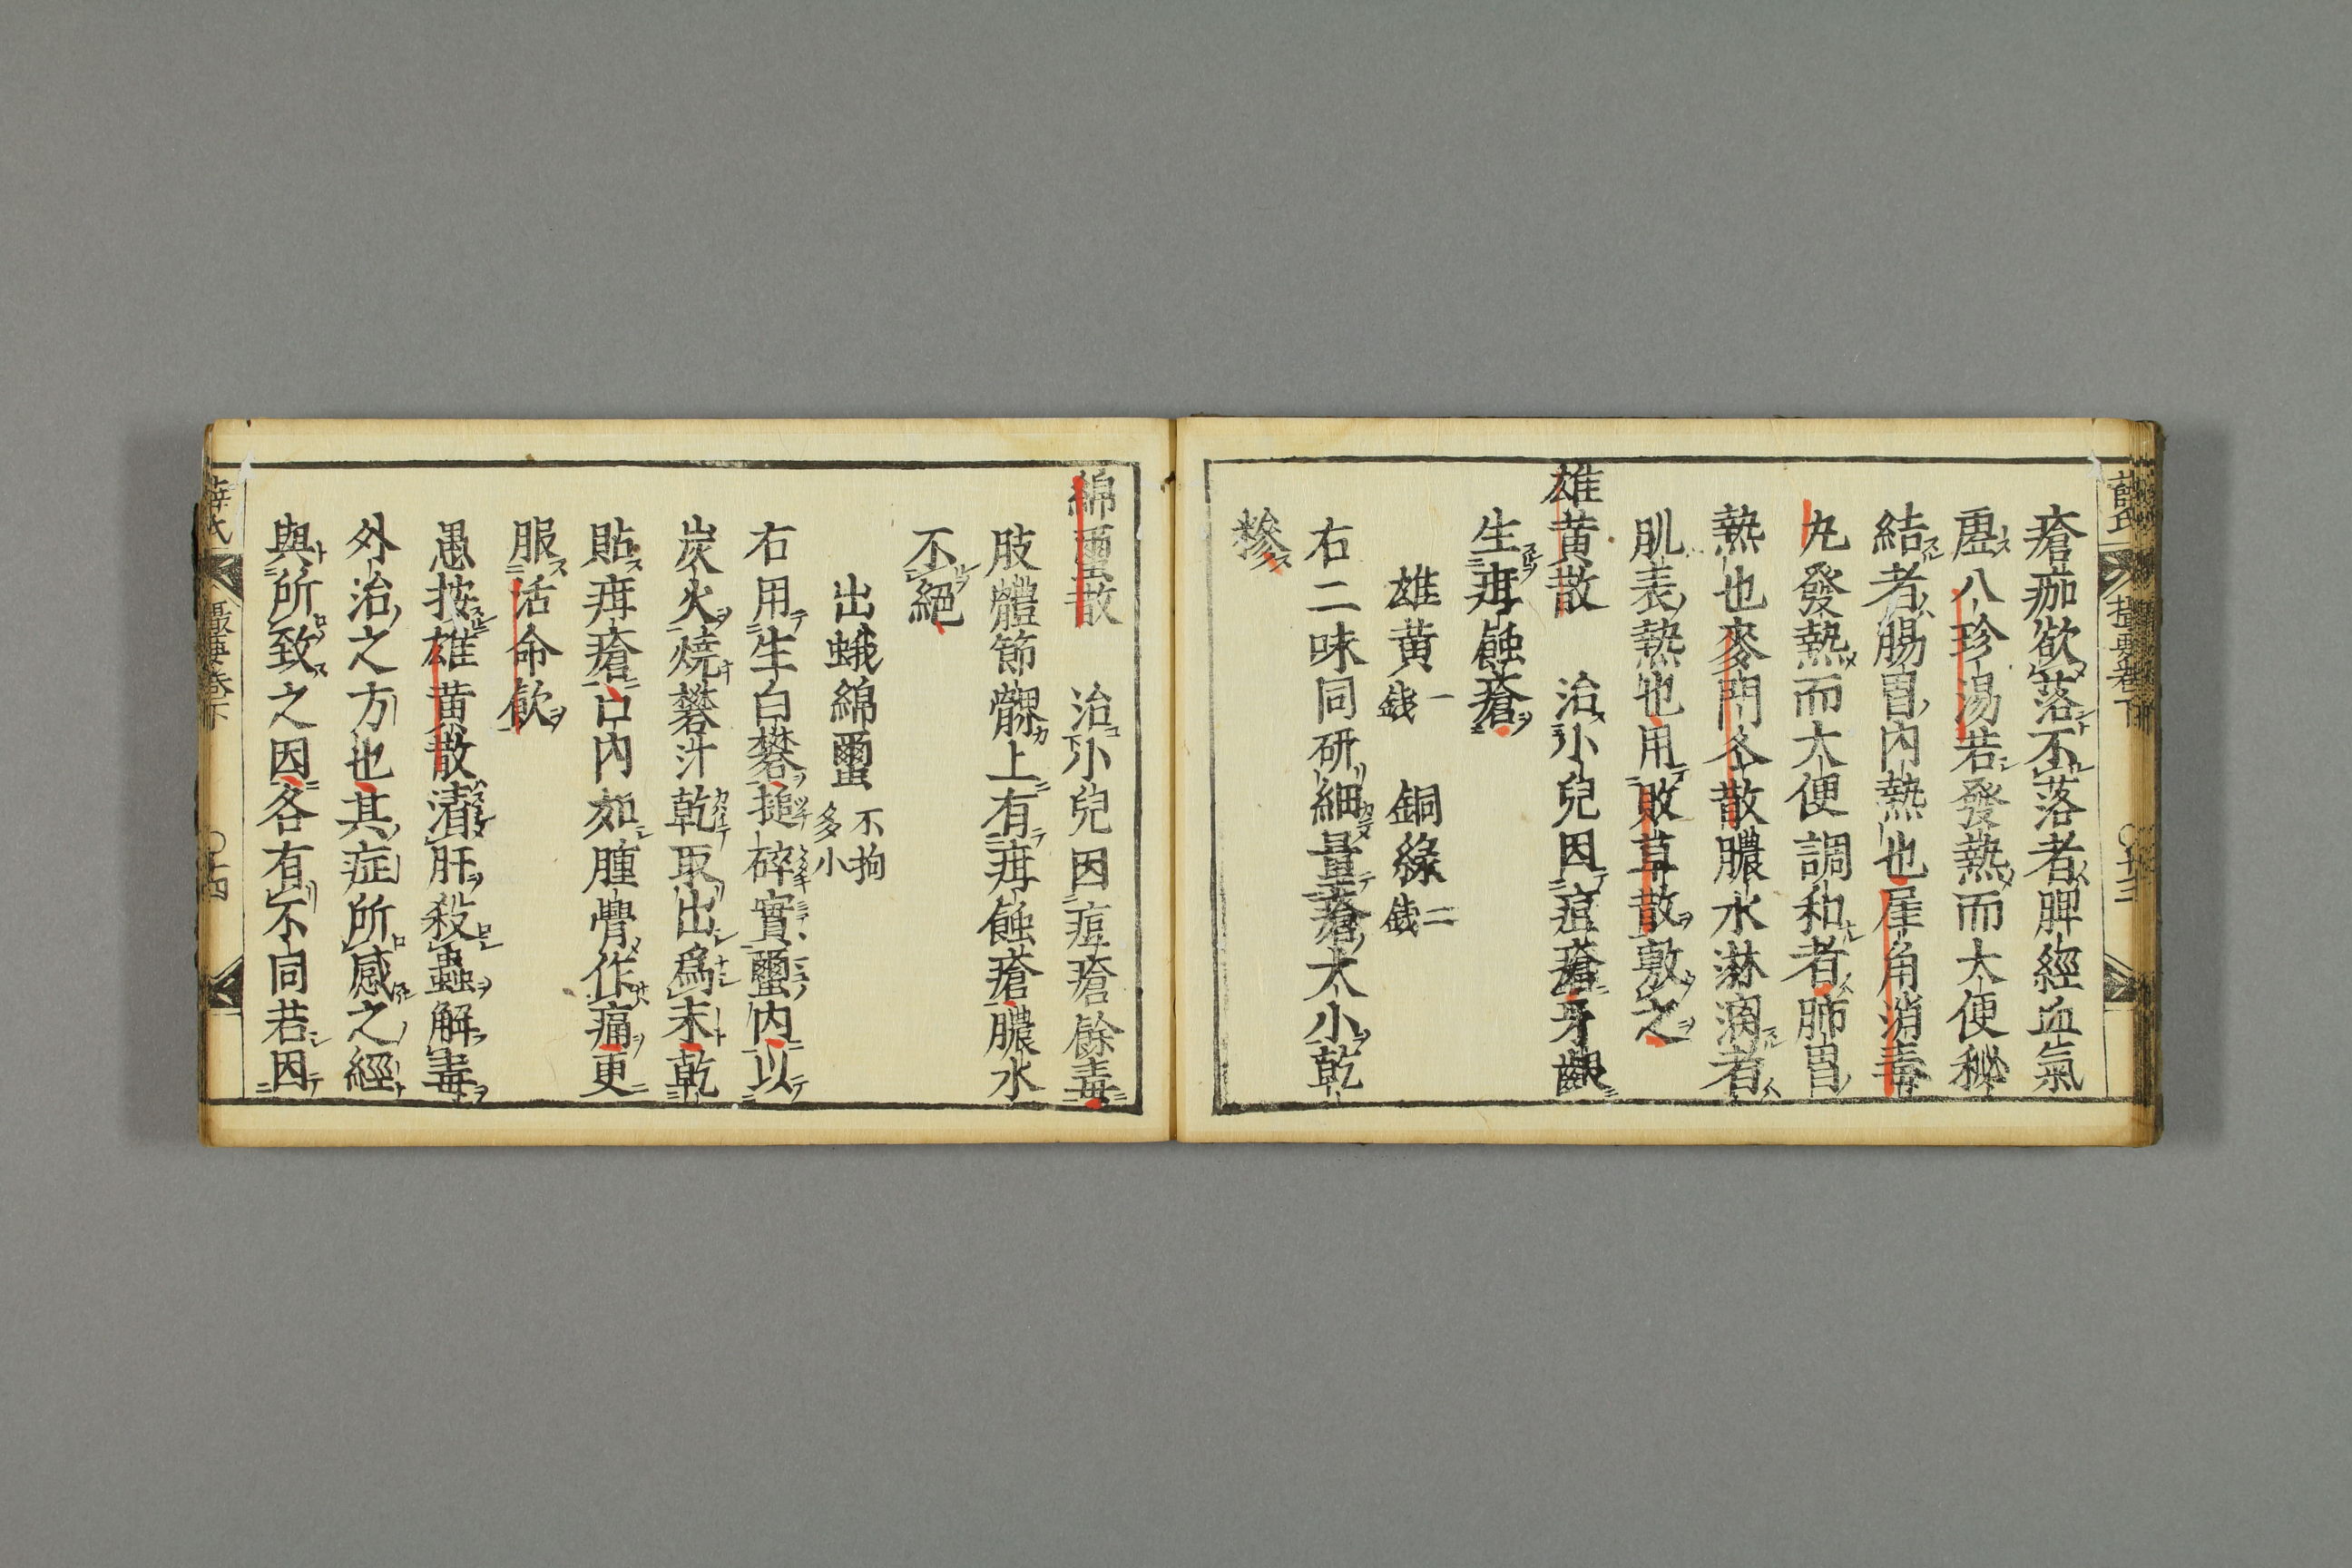 瘡痂欲落不落者脾經血氣
虛八珍湯若發熱而大便秘
結者腸胃內熱也犀角消毒
丸發熱而大便調和者肺胃
熱也麥門冬散膿水淋漓者
肌表熱也用敗草散敷之
雄黄散 治小兒因痘瘡牙齦
生疳蝕瘡
雄黄一錢 銅綠二錢
右二味同研細量瘡大小乾
糝
綿蠒散 治小兒因痘瘡餘毒
肢體節髁上有疳蝕瘡膿水
不絕
出蛾綿蠒不拘多小
右用生白礬搥碎實蠒內以
炭火燒礬汁乾取出爲末乾
貼疳瘡口內如腫臖作痛更
服活命飲
愚按雄黄散淸肝殺蟲解毒
外治之方也其症所感之經
與所致之因各有不同若因